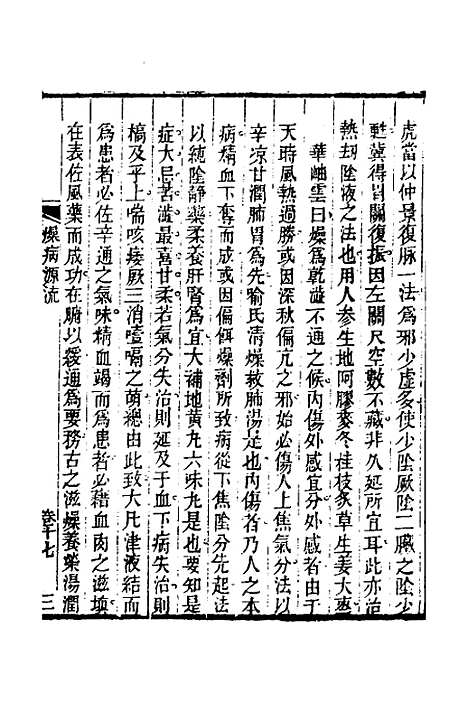 虎當以仲景復脉一法爲邪少虛多使少陰厥陰二臟之陰少
甦冀得胃關復振因左關尺空數不藏非久延所宜耳此亦治
熱刼陰液之法也用人參生地阿膠麥冬桂枝炙草生姜大棗
華岫雲曰燥爲乾澁不通之候內傷外感宜分外感者由于
天時風熱過勝或因深秋偏亢之邪始必傷人上焦氣分法以
辛凉甘潤肺胃爲先喻氏清燥救肺湯是也內傷者乃人之本
病精血下奪而成或因偏餌燥劑所致病從下焦陰分先起法
以純陰靜藥柔養肝腎爲宜大補地黄丸六味丸是也要知是
症大忌苦澁最喜甘柔若氣分失治則延及于血下病失治則
槁及乎上喘咳痿厥三消噎嗝之萌總由此致大凡津液結而
爲患者必佐辛通之氣味精血竭而爲患者必藉血肉之滋填
在表佐風藥而成功在腑以緩通爲要務古之滋燥養榮湯潤
燥病源流
卷十七
三